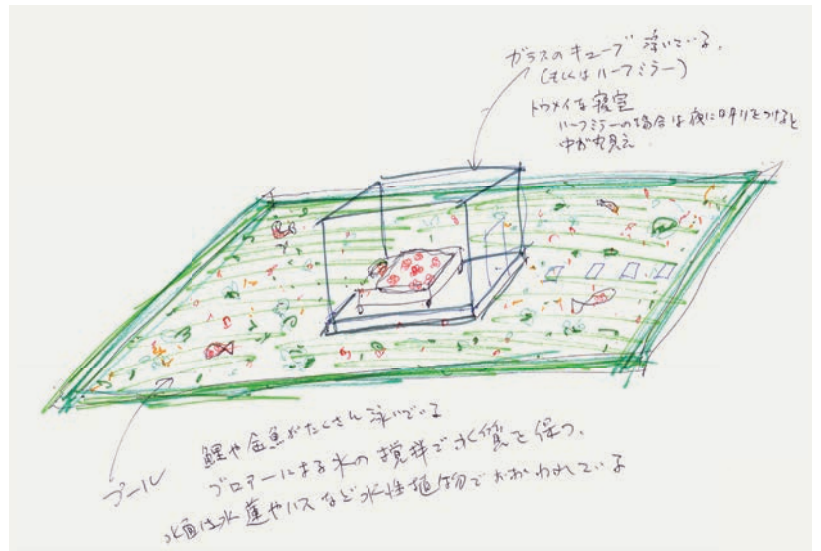 ガラスのキューブ 浮いている。
(もしくはハーフミラー)
トウメイな寝室
ハーフミラーの場合は夜に明りをつけると
中が丸見え
プール
鯉や金魚がたくさん泳いでいる
ブロアーによる水の撹拌で水質を保つ、
水面は水蓮やハスなど水性植物でおおわれている